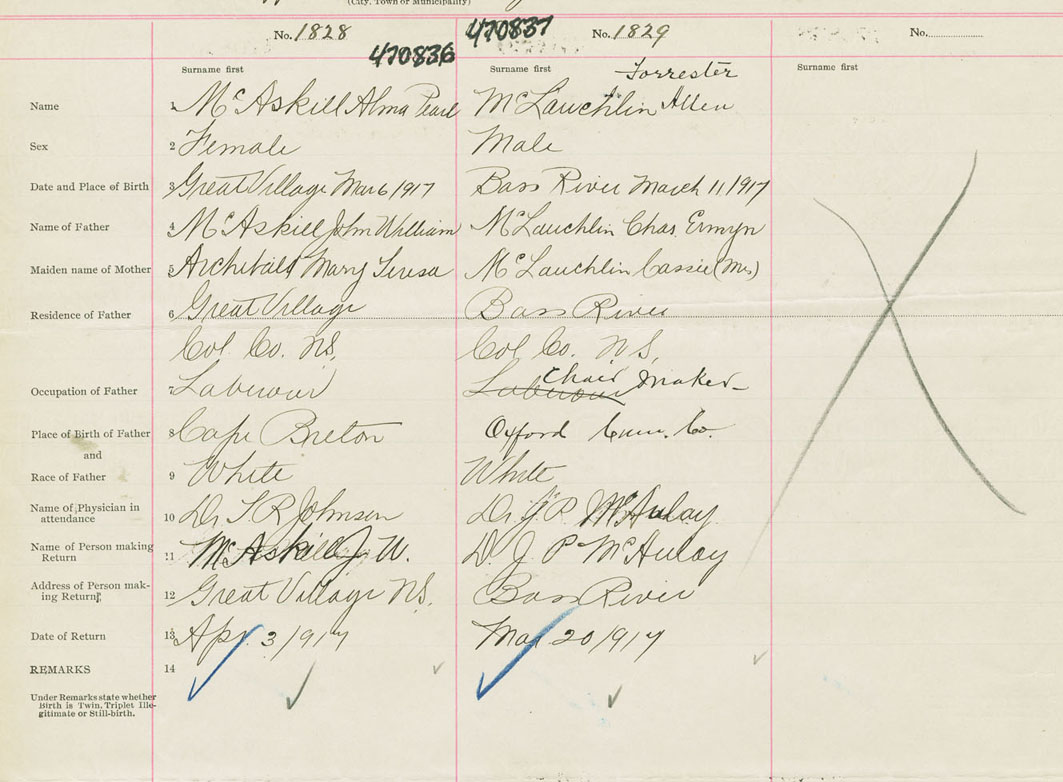 (City, Town or Municipality)
No. 1828 470837 No. 1829 No.
470836
Surname first Surname first Surname first
Forrester
Name 1 McAskill Alma Pearl McLauchlin Allen
Sex 2 Female Male
Date and Place of Birth 3 Great Village Mar 6/1917 Bass River March 11, 1917
Name of Father 4 McAskill John William McLauchlin Chas. Ermyn
Maiden name of Mother 5 Archibald Mary Teresa McLauchlin Cassie (Mrs)
Residence of Father 6 Great Village Bass River
Col. Co. N.S. Col. Co. N.S.
Chair maker
Occupation of Father 7 Labourour Labourour
Place of Birth of Father 8 Cape Breton Oxford Cum. Co.
and
Race of Father 9 White White
Name of Physician in
attendance 10 Dr T. R. Johnson Dr J. P. McAulay
Name of Person making
Return 11 McAskill J. W. D. J P McAulay
Address of Person mak-
ing Return 12 Great Village N.S. Bass River
Date of Return 13 Apr. 3/1917 Mar 20/1917
REMARKS 14
Under Remarks state whether
Birth is Twin, Triplet Ille-
gitimate or Still-birth.